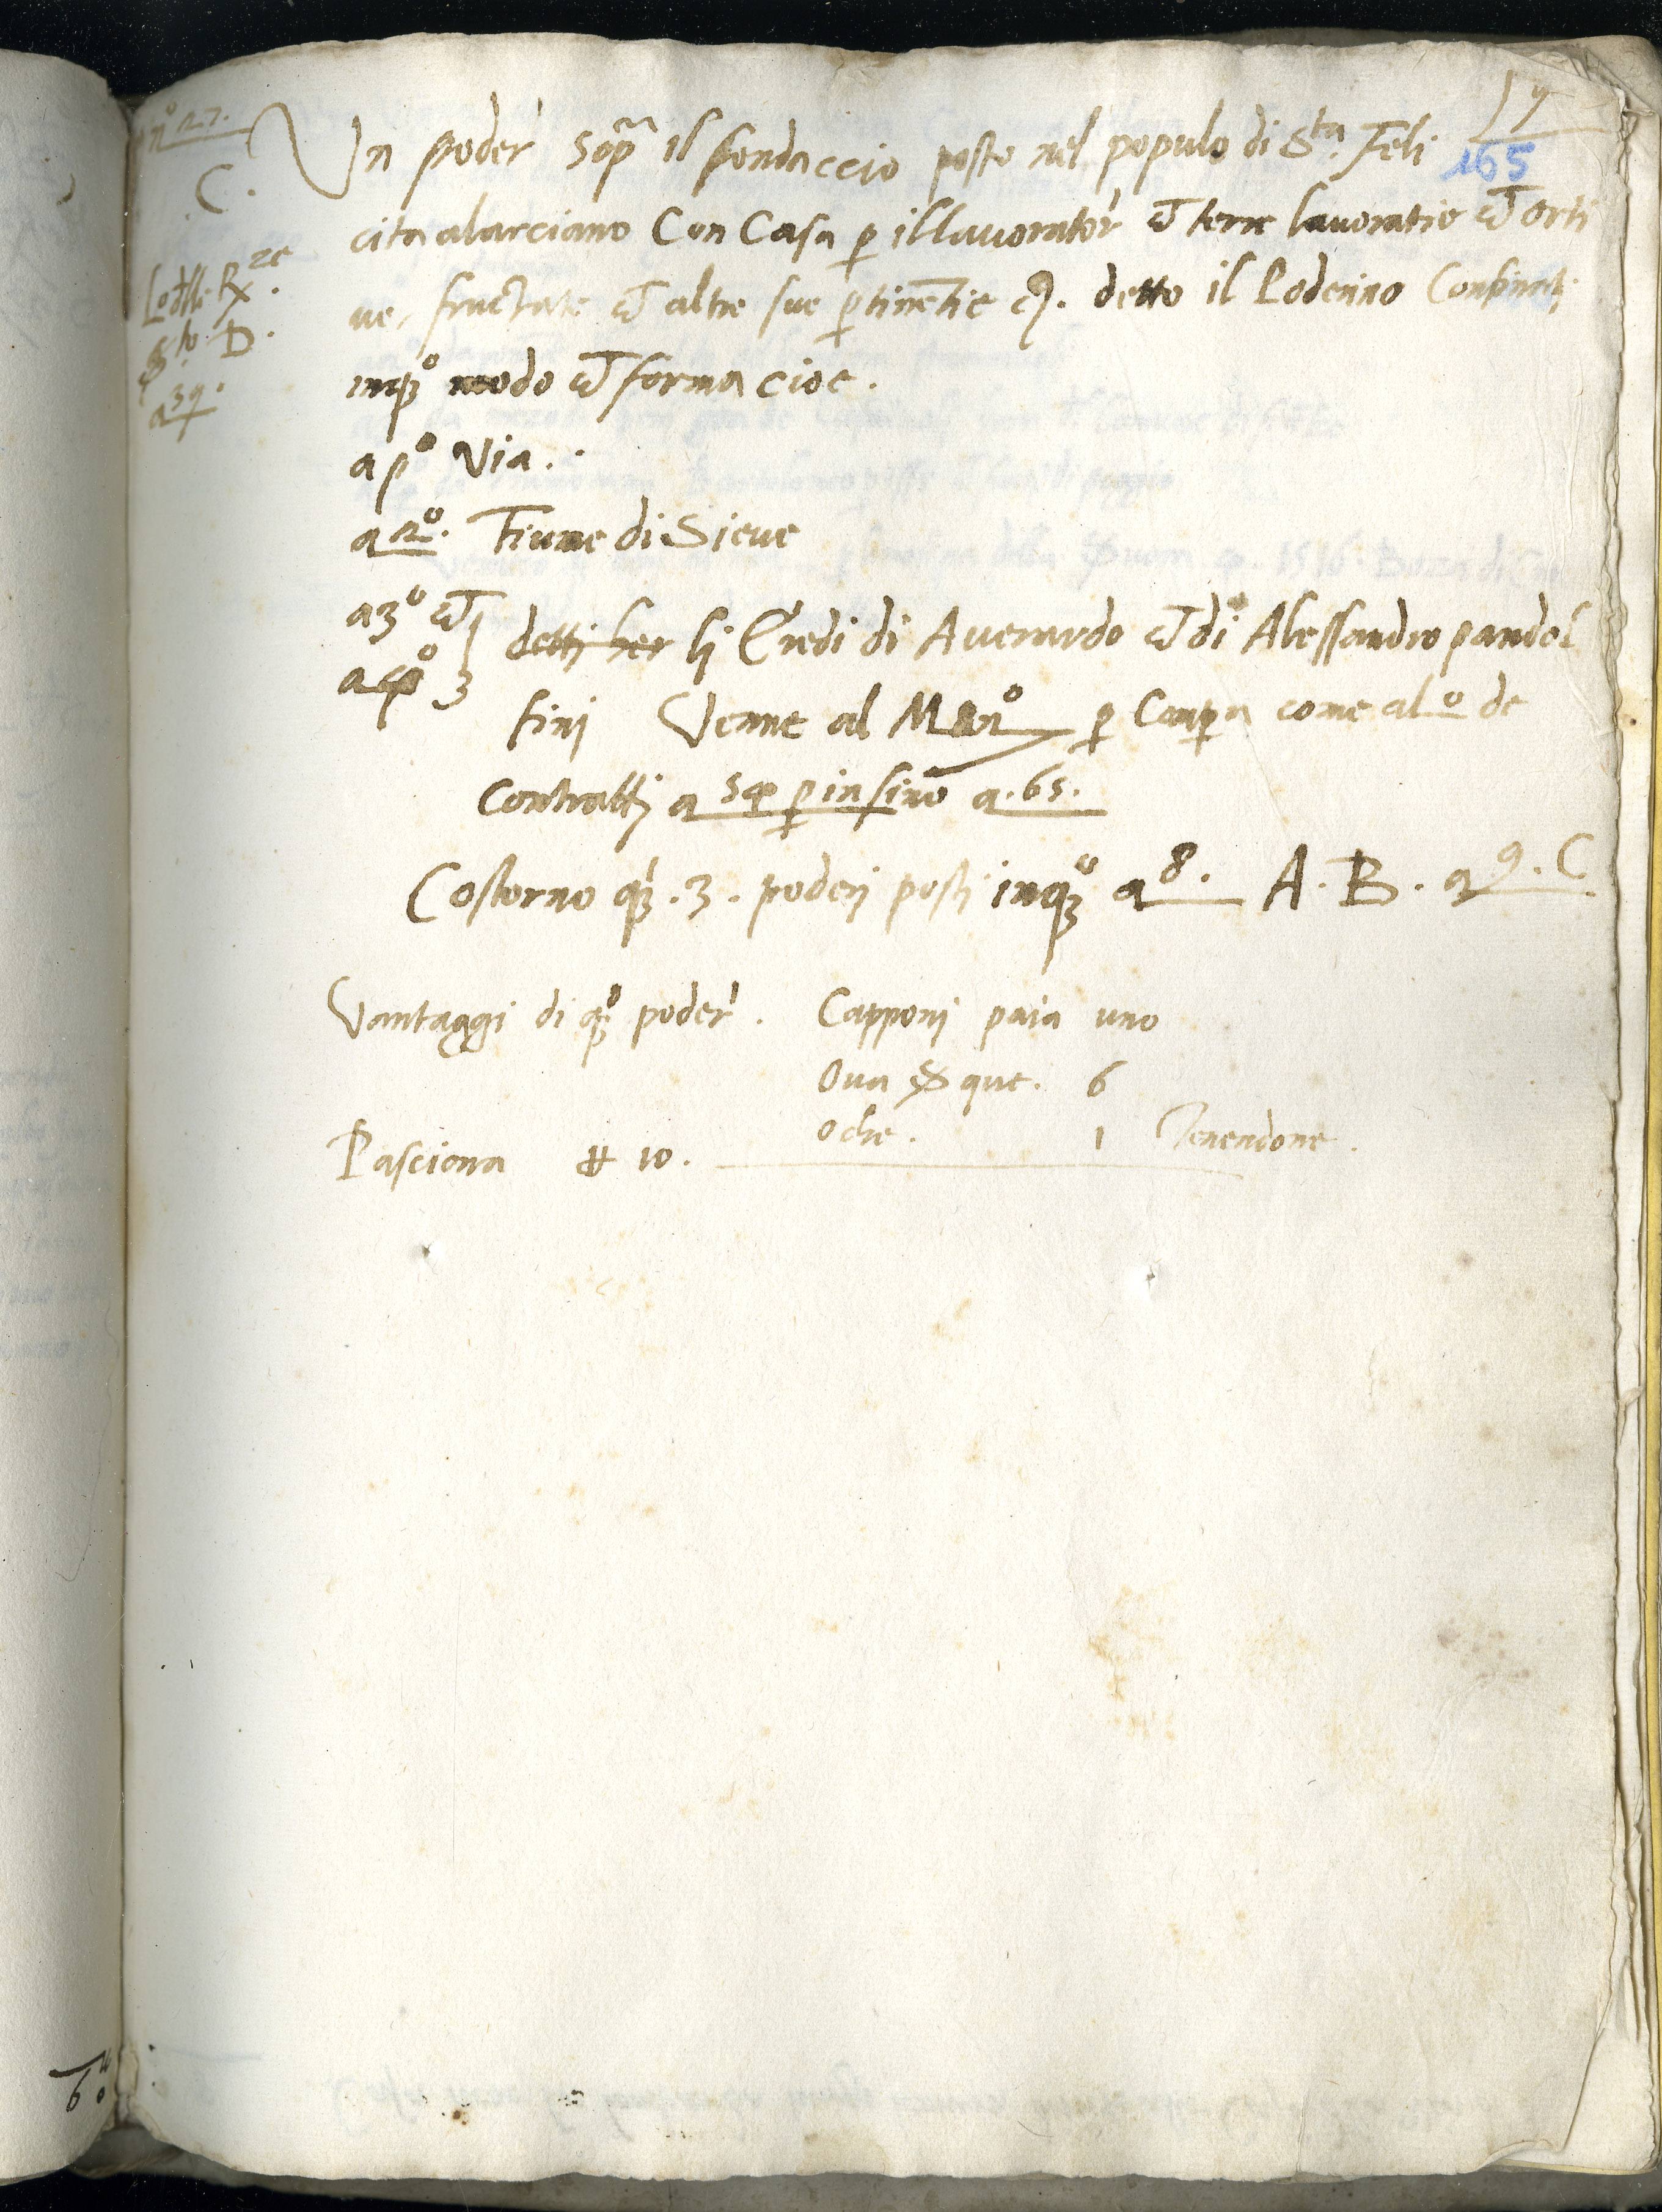 9
165
n° 27.
C.
Un poder' sop̃a il fondaccio posto nel populo di S.ta Feli
cita alarciano Con Casa p illauorator' et terre lauoratie et orti
ue, fructate et altre sue ptinẽtie detto il Lodeino Confinato
inq° modo et forma cioe.
a p° Via.
a 2°. Fiume di Sieve
a 3° et
a 4° detti her li Eredi di Auerardo et di Alessandro pandol
fini Venne al Mon° p Conpa come al° de
Contratti a 54 p insino a. 65.
Costorno q̃. 3. poderi posti inq° a 8. A. B. a 9. C
Vantaggi di q° poder'. Capponi paia uno
Oua Serque. 6
oche. 1 Tenendone.
Pasciona # 10.